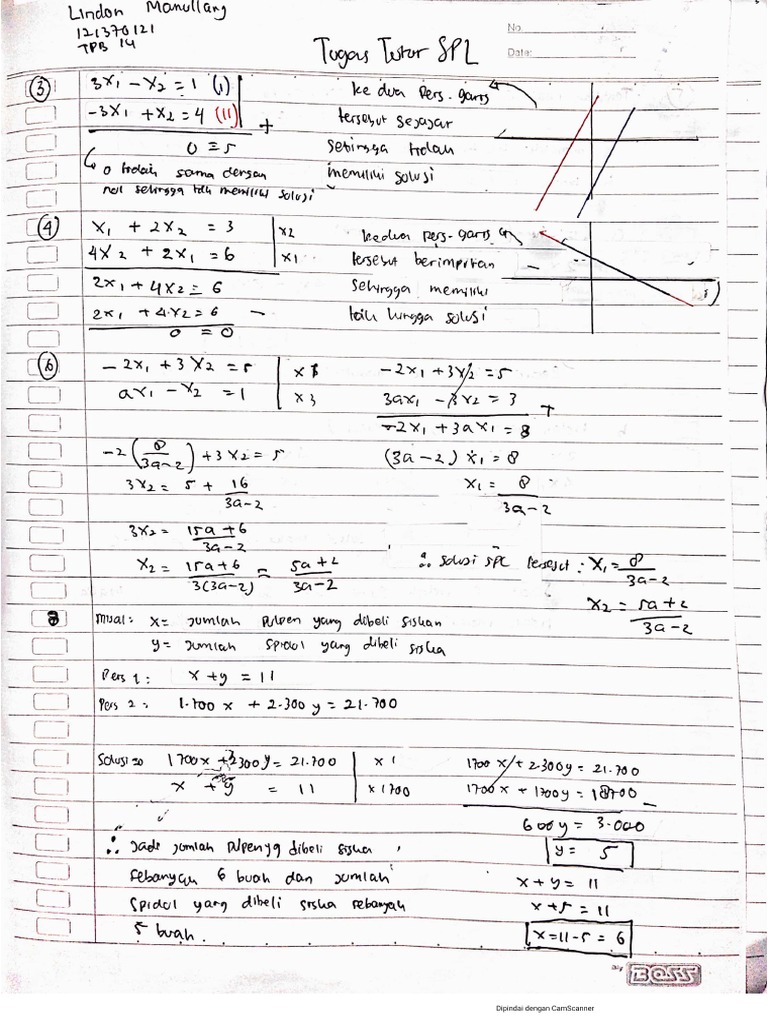 Lindon Manullang
121370121
TPB 14
No.
Date:
Tugas Tutor SPL
3
3x₁ - x₂ = 1 (I)
-3x₁ + x₂ = 4 (II)
+
0 = 5
0 tidak sama dengan
nol sehingga tdk memiliki solusi
kedua pers. garis
tersebut sejajar
sehingga tidak
memiliki solusi
4
x₁ + 2x₂ = 3 | x2
4x₂ + 2x₁ = 6 | x1
2x₁ + 4x₂ = 6
2x₁ + 4x₂ = 6 -
0 = 0
kedua pers. garis
tersebut berimpitan
sehingga memiliki
tak hingga solusi
6
-2x₁ + 3x₂ = 5 | x 1
ax₁ - x₂ = 1 | x 3
-2x₁ + 3x₂ = 5
3ax₁ - 3x₂ = 3
+
-2x₁ + 3ax₁ = 8
(3a-2) x₁ = 8
x₁ = 8/(3a-2)
-2(8/(3a-2)) + 3x₂ = 5
3x₂ = 5 + 16/(3a-2)
3x₂ = (15a+6)/(3a-2)
x₂ = (15a+6)/(3(3a-2)) = (5a+2)/(3a-2)
∴ Solusi SPL tersebut : x₁ = 8/(3a-2)
x₂ = (5a+2)/(3a-2)
8
misal : x = jumlah pulpen yang dibeli siskan
y = jumlah spidol yang dibeli siska
Pers 1 : x + y = 11
Pers 2 : 1.700 x + 2.300 y = 21.700
Solusi 1700x + 2300y = 21.700 | x 1
x + y = 11 | x 1700
1700 x + 2.300y = 21.700
1700x + 1700y = 18700 -
600y = 3.000
y = 5
x + y = 11
x + 5 = 11
x = 11 - 5 = 6
∴ Jadi jumlah pulpen yg dibeli siska
sebanyak 6 buah dan jumlah
spidol yang dibeli siska sebanyak
5 buah.
BOSS
Dipindai dengan CamScanner